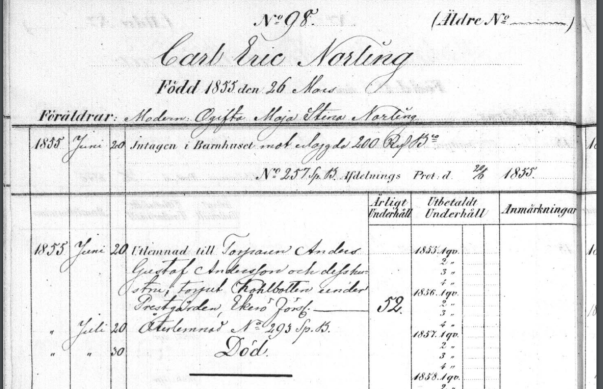 No 98.
(Äldre No
Carl Eric Norling
Född 1855 den 26 Mars
Föräldrar: Modern: Ogifta Maja Stina Norling
1855 Juni 20 Intagen i Barnhuset mot erlagde 200 B:o
No 257 Sp. B. Afdelnings Prot. d. 20/6 1855.
Årligt Underhåll
Utbetaldt Underhåll
Anmärkningar
1855 Juni 20 Utlemnad till Torparen Anders
Gustaf Andersson och dess hu-
stru, torpet Kohlbotten under
Prestgården, Ekerö Förs. 52.
" Juli 20 Återlemnad No 293 Sp. B.
" " 30 Död.
1855. 1 qv.
2 "
3 "
4 "
1856. 1 qv.
2 "
3 "
4 "
1857. 1 qv.
2 "
3 "
4 "
1858. 1 qv.